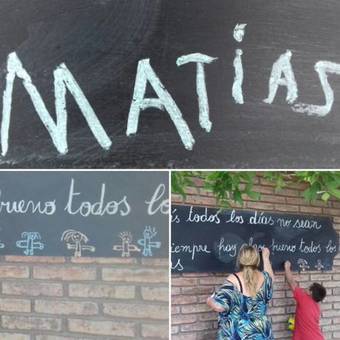 MATíAS
bueno todos lo
s todos los días no sean
siempre hay algo bueno todos lo
s